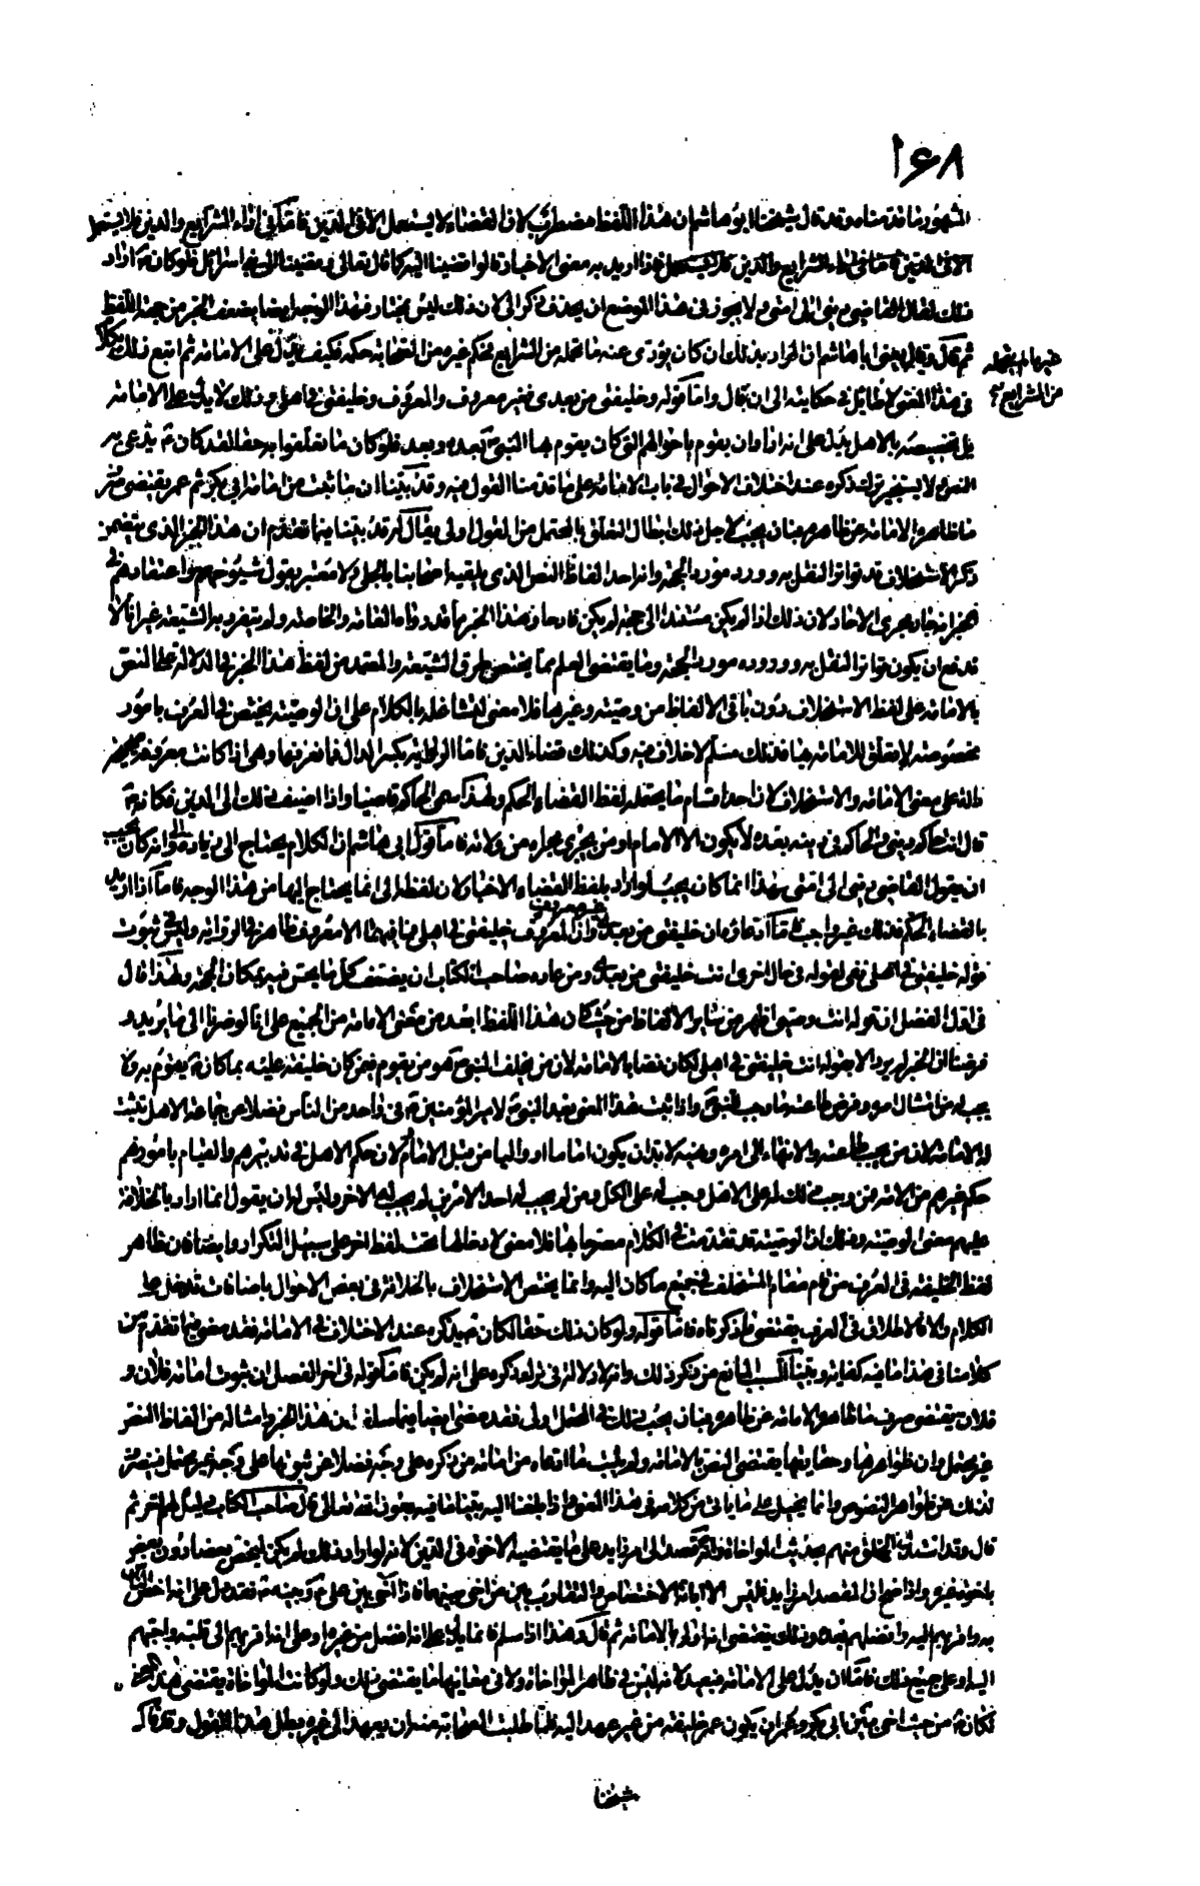 ١٦٨
المشهور ما قدمناه وقد قال شيخنا ابو هاشم ان هذا اللفظ مضطرب لان القضاء لا يستعمل الا في الدين فاما في اداء الشرايع والدين فلا يستعمل
الا في الدين فاما في الشرايع والدين فلا يستعمل هذا اريد به معنى الاخبار قالوا قضينا اليه كما قال تعالى وقضينا الى بني اسرائيل فلو كان ع اراد
ذلك لقال القاضي ديني الى امتي ولا يجوز في هذا الموضع ان يحذف ذكر الى لان ذلك ليس بمجاز فهذا الوجه ايضا يضعف الخبر من جهة اللفظ
ثم قال وقال يعني ابا هاشم ان المراد بذلك ان كان يؤدي عنه ما تحمله من الشرايع فحكم غيره من الصحابة حكمه فكيف يدل على الامامة ثم اتبع ذلك بكلام
غيره ما لم يتحمله
من الشرايع
في هذا المعنى لا طائل في حكايته الى ان قال واما قوله وخليفتي من بعدي فغير معروف والمعروف وخليفتي في اهلي وذلك لا يدل على الامامة
بل تخصيصه بالاهل يدل على انه اراد ان يقوم باحوالهم التي كان يقوم بها النبي بعده وبعد فلو كان ما تعلقوا به حقا لقد كان ع يدعي به
النص ولا يستجيز ترك ذكره عند اختلاف الاحوال في باب الامامة على ما قدمنا القول فيه وقد بينا ان ما ثبت من امامة ابي بكر ثم عمر يقتضي صرف
ما ظاهره الامامة عن ظاهره فبان يجب لاجل ذلك ابطال التعلق بالمحتمل من القول اولى يقال له قد بينا فيما تقدم ان هذا الخبر الذي يتضمن
ذكر الاستخلاف قد تواتر النقل به وورد مورد الحجة وانه احد الفاظ النص الذي يلقبه اصحابنا بالجلي ولا معتبر بقول شيوخهم واعتقادهم في
الخبر انه جاء مجرى الاحاد لان ذلك اذا لم يكن مستندا الى حجة لم يكن قادحا وهذا الخبر مما قد رواه العامة والخاصة ولم يتفرد به الشيعة غير انا لا
ندفع ان يكون تواتر النقل به ووروده مورد الحجة وما يقتضي العلم مما يختص طرق الشيعة والمعتمد من لفظ هذا الخبر في الدلالة على النص
بالامامة على لفظ الاستخلاف دون باقي الالفاظ من وصيته وغيرها فلا معنى لتشاغله بالكلام على ان الوصية يختص في العرف بامور
مخصوصة لا تعلق للامامة بها فذلك مسلم لا خلاف فيه وكذلك قضاء الدين فاما الرواية بكسر الدال فما نعرفها وهي اذا كانت معروفة صحيحة
دالة على معنى الامامة والاستخلاف لان احد اقسام ما يحتمله لفظ القضاء الحكم ولهذا سمي الحاكم قاضيا واذا اضيف ذلك الى الدين فكانه ع
قال انت حاكم ديني والحاكم في دينه بعده لا يكون الا الامام او من يجري مجراه من ولاته فاما قول ابي هاشم ان الكلام يحتاج الى زيادة الى وانه كان يجب
ان يقول القاضي ديني الى امتي فهذا انما كان يجب لو اراد بلفظ القضاء الاخبار لان لفظ الى انما يحتاج اليها من هذا الوجه فاما اذا اريد
بالقضاء الحكم فذلك غير واجب فاما ادعاؤه ان خليفتي من بعدي غير معروف وان المعروف خليفتي في اهلي فما فيهما الا معروف ظاهر في الرواية وليس ثبوت
قوله خليفتي في اهلي نفي لقوله في حال اخرى انت خليفتي من بعدي ومن عادة صاحب الكتاب ان يضعف كل ما يحس فيه بمكان الحجة ولهذا قال
في اول الفصل ان قوله انت وصيي اظهر من سائر الالفاظ من حيث كان هذا اللفظ ابعد من معنى الامامة من الجميع على انا لو صرنا الى ما يريد و
فرضنا ان الخبر لم يرد الا بقوله انت خليفتي في اهلي لكان نصا بالامامة لان من يخلف النبي ع هو من يقوم فيمن كان خليفته عليه بما كان ع يقوم به ولا
يجب له من امتثال امره وفرض طاعته ما وجب للنبي ع واذا ثبت هذا المعنى بعد النبي ع لامير المؤمنين ع في واحد من الناس فضلا عن جماعة الاهل ثبتت
له الامامة لان من يجب طاعته والانتهاء الى امره ونهيه لا بد ان يكون اماما او واليا من قبل الامام لان حكم الاهل في تدبيرهم والقيام بامورهم
حكم غيرهم من الامة فمن وجب ذلك له على الاهل وجب له على الكل ومن لم يجب له احد الامرين لم يجب له الاخر وليس له ان يقول انما اراد بالخلافة
عليهم معنى الوصية وذلك ان الوصية قد تقدمت في الكلام مصرحا بها فلا معنى لادخالها تحت لفظ اخر على سبيل التكرار وايضا فان ظاهر
لفظ الخليفة في العرف من قام مقام المستخلف في جميع ما كان اليه وانما يختص الاستخلاف بالخلافة في بعض الاحوال باضافات تدخل على
الكلام والا فالاطلاق في العرف يقتضي ما ذكرناه فاما قوله ولو كان ذلك حقا لكان ع يذكره عند الاختلاف في الامامة فقد مضى فيما تقدم من
كلامنا في هذا ما فيه كفاية وبينا السبب المانع من ذكر ذلك وانه لا دلالة في ترك ذكره على انه لم يكن فاما قوله في اخر الفصل ان ثبوت امامة فلان و
فلان يقتضي صرف ما ظاهره الامامة عن ظاهره فبان يجب ذلك في المحتمل اولى فقد مضى ايضا فيما سلف ان هذا الخبر وامثاله من الفاظ النص
غير محتمل وان ظواهرها وحقايقها يقتضي النص بالامامة ولم يثبت ما ادعاه من امامة من ذكره على وجه فضلا عن ثبوتها على وجه غير محتمل فينصرف
لذلك عن ظواهر النصوص وانما يحيل على ما ياتي من كلامه في هذا المعنى واذا بلغنا اليه بينا ما فيه بعون الله تعالى قال صاحب الكتاب دليل لهم اخر ثم
قال وقد استدل الخلق منهم بحديث المواخاة وانه قصد الى امر زايد على ما يقتضيه الاخوة في الدين لانه لو اراد ذلك لم يكن ليخص بعضا دون بعض
باخوة غيره واذا صح ان المقصد امر زايد فليس الا ابانة الاختصاص والتقارب بين من اخى بينهما فاذا آخى بين علي ع وبينه ع فقد دل على انه اخص الناس
به واقربهم اليه وافضلهم بعده وذلك يقتضي انه اولى بالامامة ثم قال وهذا اذا سلم فانما يدل على انه افضل من غيره او على انه اقربهم الى قلبه واحبهم
اليه او على جميع ذلك فاما ان يدل على الامامة فبعيد لانه ليس في ظاهر المواخاة ولا في معانيها ما يقتضي ذلك ولو كانت المواخاة يقتضي هذا المعنى
لكان ع من حيث اخى بين ابي بكر وعمر ان يكون عمر خليفته من غير عهد اليه فلما طلبت الصحابة منه ان يعهد الى غيره بطل هذا القول وقد قال
شيخنا